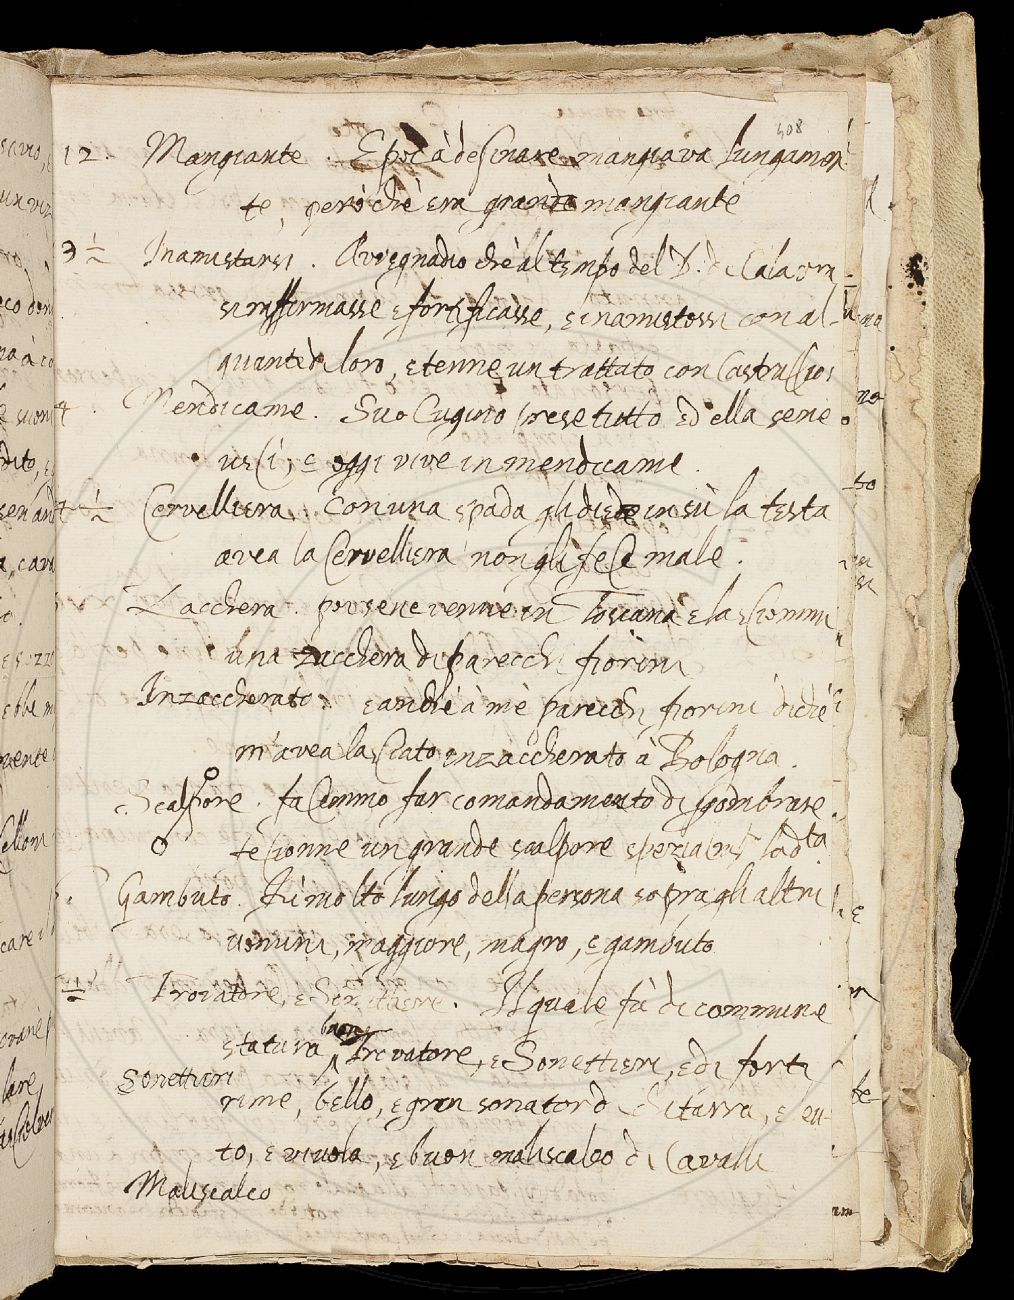 408
12. Mangiante. E poi à desinare mangiava lungamen
te, però chè era grande mangiante
3 1/2 Inamistarsi. Avvegnadio chè al tempo del D. di Calavra
si raffermasse e fortificasse, e inamistossi con al-
quanti di loro, e tenne un trattato con Castruccio
4 Mendicame. Suo Cugino prese tutto ed ella sene
uscì, e oggi vive in mendicame.
4 1/2 Cervelliera, Con una spada gli diede in sù la testa
avea la Cervelliera non gli fece male.
Zacchera poi sene venne in Toscana e lasciommi
una zacchera di parecchi fiorini
Inzaccherato. e anche à mè parecchi fiorini di chè
m'avea lasciato inzaccherato à Bologna.
Scalpore. facemmo far comandamento di sgombrare
fecionne un grande scalpore
Gambuto. Fù molto lungo della persona sopra gli altri
uomini, maggiore, magro, e gambuto
Trovatore, e Sonettiere. Il quale fù di commune
statura, buono Trovatore, e Sonettieri, e di forti
Sonettieri
rime, bello, e gran sonatore di tarra, e liu-
to, e vivola, e buon maliscalco di Cavalli
Maliscalco